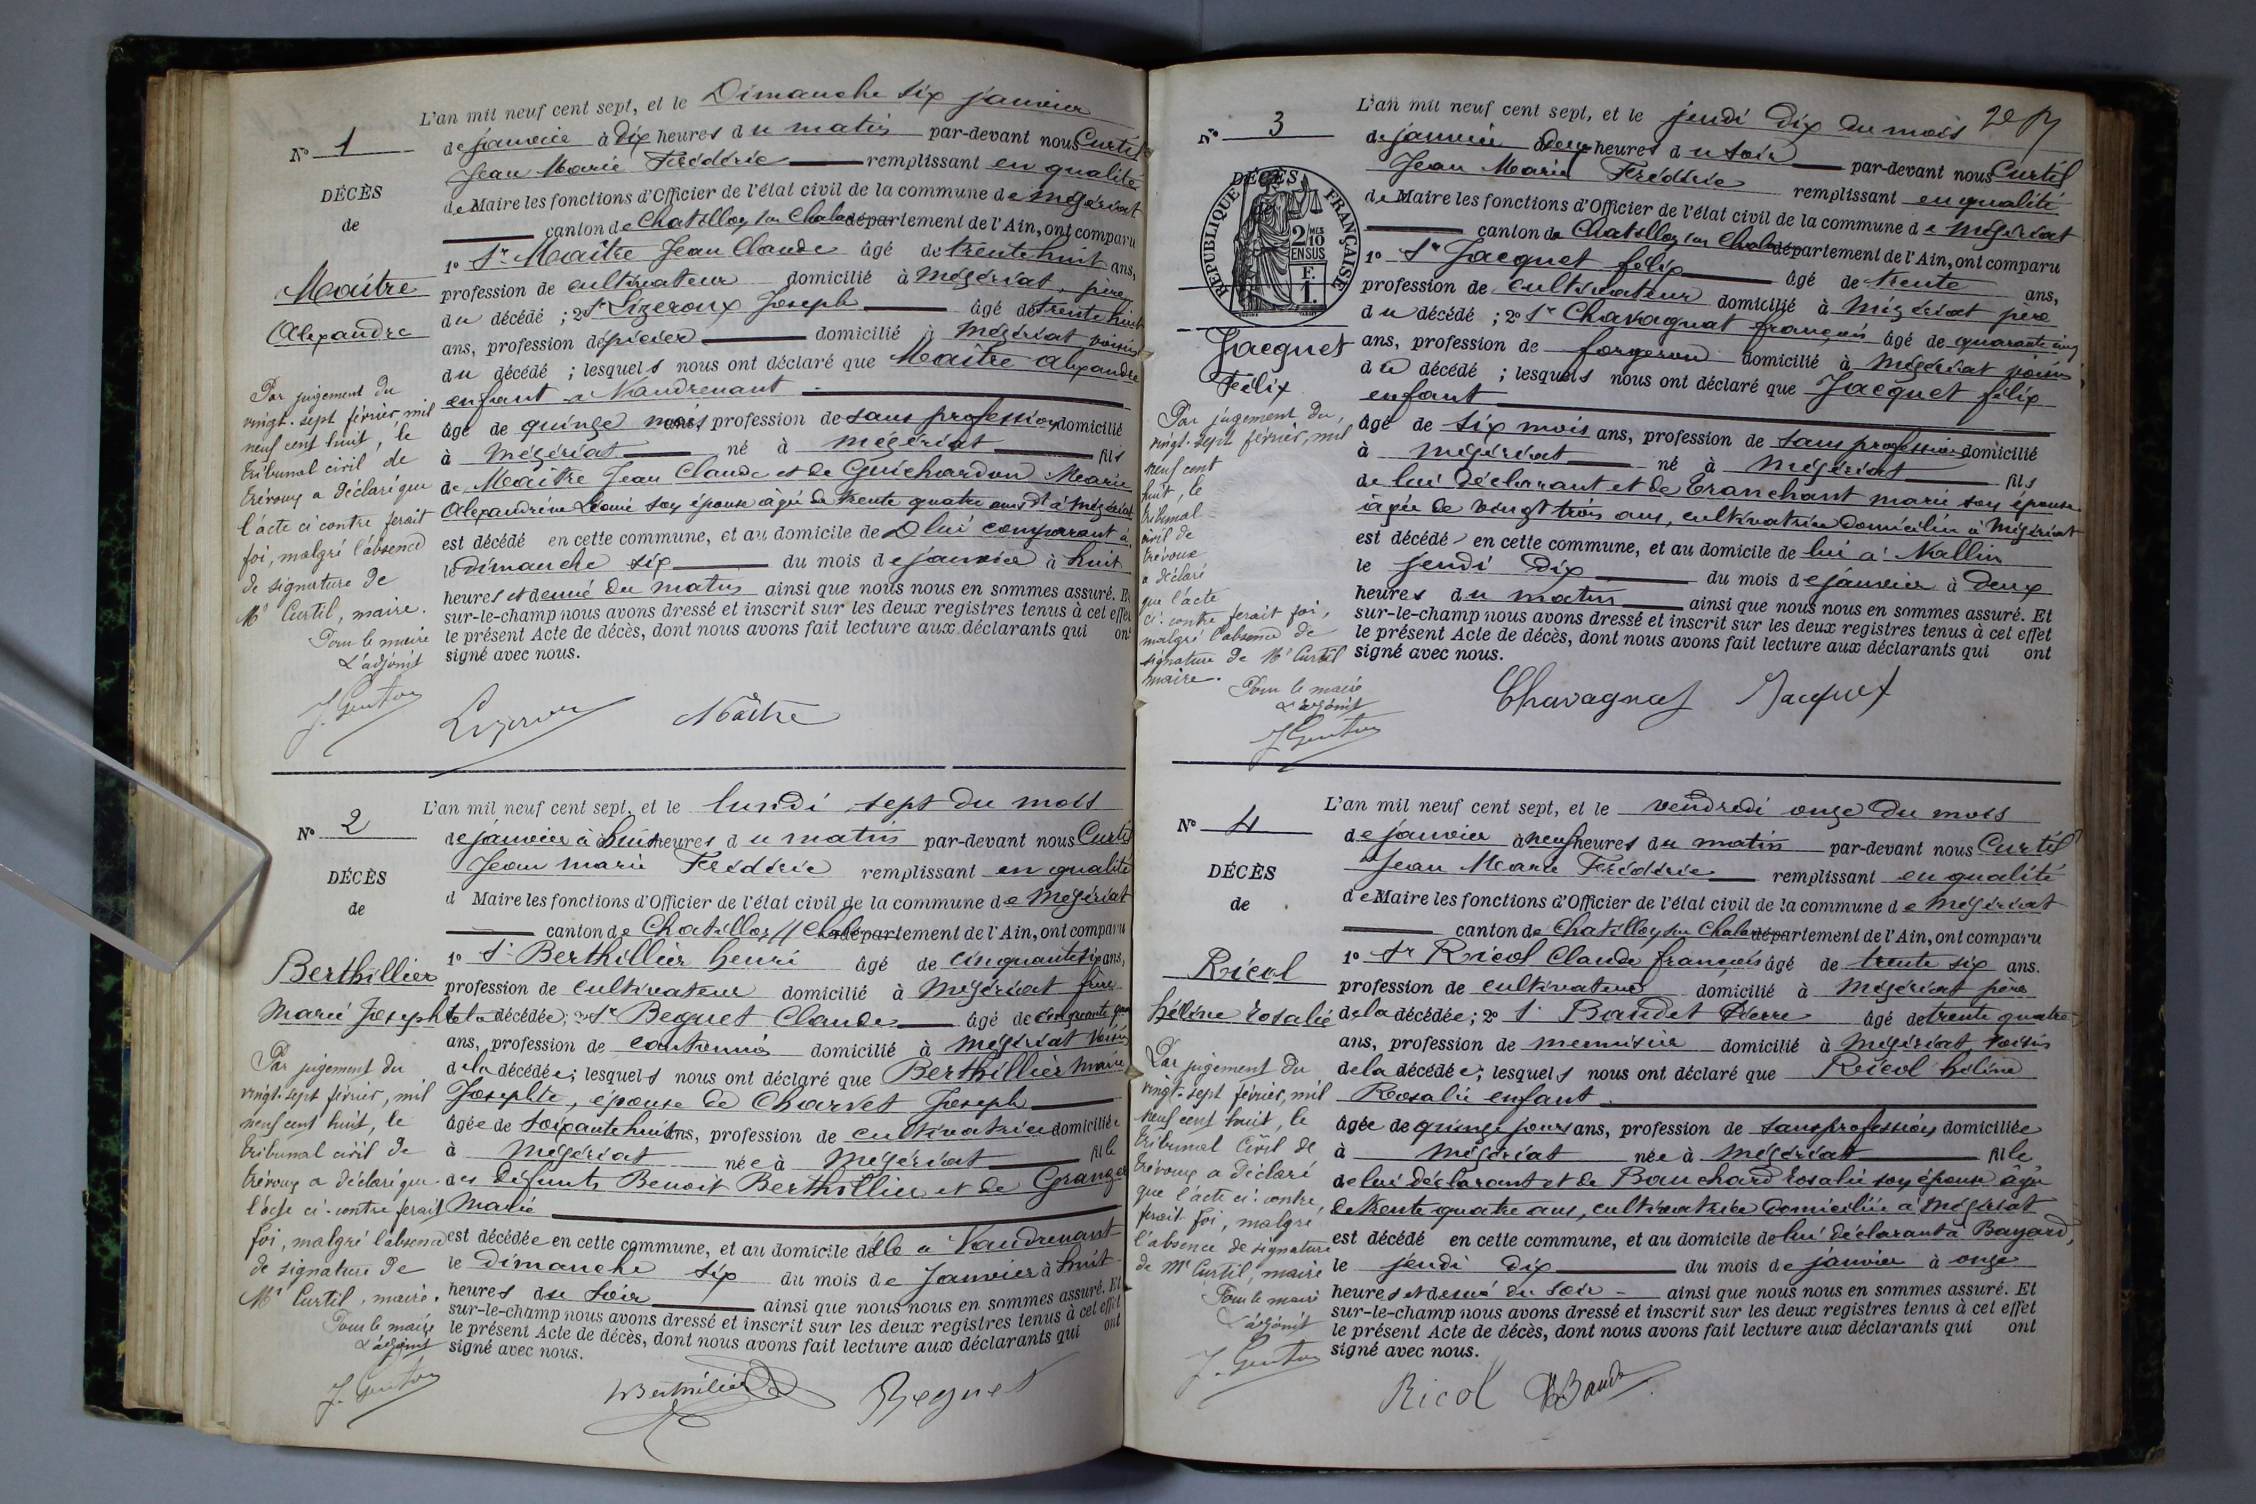 L'an mil neuf cent sept, et le Dimanche six janvier
N° 1
de janvier à dix heures du matin par-devant nous Curtil
Jean Marie Frédéric remplissant en qualité
DÉCÈS
de Maire les fonctions d'Officier de l'état civil de la commune de Mézériat
de
canton de Chatillon sur Chala département de l'Ain, ont comparu
1° Sr Maître Jean Claude âgé de trente huit ans,
Maître
profession de cultivateur domicilié à Mézériat, père
Alexandre
du décédé ; 2° Sr Lizeroux Joseph âgé de trente huit
ans, profession d'épicier domicilié à Mézériat voisin
du décédé ; lesquels nous ont déclaré que Maître Alexandre
enfant à Vaudrenant
âgé de quinze mois ans, profession de sans profession domicilié
à Mézériat né à Mézériat fils
de Maître Jean Claude et de Guichardon Marie
Alexandrine Léonie son épouse âgée de trente quatre ans dt à Mézériat
est décédé en cette commune, et au domicile de lui comparant à
le dimanche six du mois de janvier à huit
heures et demie du matin ainsi que nous nous en sommes assuré. Et
sur-le-champ nous avons dressé et inscrit sur les deux registres tenus à cet effet
le présent Acte de décès, dont nous avons fait lecture aux déclarants qui ont
signé avec nous.
Par jugement du
vingt-sept février mil
neuf cent huit, le
tribunal civil de
Trévoux a déclaré que
l'acte ci contre ferait
foi, malgré l'absence
de signature de
Mr Curtil, maire.
Pour le maire
L'adjoint
J. Genton
Lizeroux Maître
L'an mil neuf cent sept, et le lundi sept du mois
N° 2
de janvier à huit heures du matin par-devant nous Curtil
Jean marie Frédéric remplissant en qualité
DÉCÈS
d Maire les fonctions d'Officier de l'état civil de la commune de Mézériat
de
canton de Chatillon s/ Chala département de l'Ain, ont comparu
1° Sr Berthillier henri âgé de cinquante six ans,
Berthillier
profession de cultivateur domicilié à Mézériat frère
Marie Josephte
de la décédée ; 2° Sr Beguet Claude âgé de cinquante quatre
ans, profession de cantonnier domicilié à Mézériat voisin
de la décédée ; lesquels nous ont déclaré que Berthillier Marie
Josephte, épouse de Charvet Joseph
âgée de soixante huit ans, profession de cultivatrice domiciliée
à Mézériat née à Mézériat fille
des défunts Benoit Berthillier et de Granger
Marie
est décédée en cette commune, et au domicile d'elle à Vaudrenant
le Dimanche six du mois de Janvier à huit
heures du soir ainsi que nous nous en sommes assuré. Et
sur-le-champ nous avons dressé et inscrit sur les deux registres tenus à cet effet
le présent Acte de décès, dont nous avons fait lecture aux déclarants qui ont
signé avec nous.
Par jugement du
vingt-sept février, mil
neuf cent huit, le
tribunal civil de
Trévoux a déclaré que
l'acte ci-contre ferait
foi, malgré l'absence
de signature de
Mr Curtil, maire.
Pour le maire
L'adjoint
J. Genton
Berthillier Beguet
L'an mil neuf cent sept, et le jeudi dix du mois
N° 3
de janvier deux heures du soir par-devant nous Curtil
Jean Marie Frédéric remplissant en qualité
DÉCÈS
RÉPUBLIQUE FRANÇAISE
2 10MES
EN SUS
F. I.
de Maire les fonctions d'Officier de l'état civil de la commune de Mézériat
canton de Chatillon sur Chala département de l'Ain, ont comparu
1° Sr Jacquet félix âgé de trente ans,
profession de cultivateur domicilié à Mézériat père
du décédé ; 2° Sr Chavagnat françois âgé de quarante cinq
Jacquet
Félix
ans, profession de forgeron domicilié à Mézériat voisin
du décédé ; lesquels nous ont déclaré que Jacquet félix
enfant
âgé de six mois ans, profession de sans profession domicilié
à Mézériat né à Mézériat fils
de lui déclarant et de Tranchant marie son épouse
âgée de vingt trois ans, cultivatrice domiciliée à Mézériat
est décédé en cette commune, et au domicile de lui à Vallin
le jeudi dix du mois de janvier à deux
heures du matin ainsi que nous nous en sommes assuré. Et
sur-le-champ nous avons dressé et inscrit sur les deux registres tenus à cet effet
le présent Acte de décès, dont nous avons fait lecture aux déclarants qui ont
signé avec nous.
Par jugement du,
vingt-sept février, mil
neuf cent
huit, le
tribunal
civil de
Trévoux
a déclaré
que l'acte
ci-contre ferait foi,
malgré l'absence de
signature de Mr Curtil
maire.
Pour le maire
L'adjoint
J. Genton
Chavagnat Jacquet
L'an mil neuf cent sept, et le vendredi onze du mois
N° 4
de janvier à neuf heures du matin par-devant nous Curtil
Jean Marie Frédéric remplissant en qualité
DÉCÈS
de Maire les fonctions d'Officier de l'état civil de la commune de Mézériat
de
canton de Chatillon sur Chala département de l'Ain, ont comparu
1° Sr Ricol Claude françois âgé de trente six ans.
Ricol
profession de cultivateur domicilié à Mézériat père
hélène rosalie
de la décédée ; 2° Sr Baudet Pierre âgé de trente quatre
ans, profession de menuisier domicilié à Mézériat voisin
de la décédée ; lesquels nous ont déclaré que Ricol hélène
Rosalie enfant
âgée de quinze jours ans, profession de sans profession domiciliée
à Mézériat née à Mézériat fille
de lui déclarant et de Bouchard rosalie son épouse âgée
de trente quatre ans, cultivatrice domiciliée à Mézériat
est décédé en cette commune, et au domicile de lui déclarant à Bayard,
le jeudi dix du mois de janvier à onze
heures et demie du soir ainsi que nous nous en sommes assuré. Et
sur-le-champ nous avons dressé et inscrit sur les deux registres tenus à cet effet
le présent Acte de décès, dont nous avons fait lecture aux déclarants qui ont
signé avec nous.
Par jugement du
vingt-sept février, mil
neuf cent huit, le
tribunal civil de
Trévoux a déclaré
que l'acte ci-contre,
ferait foi, malgré
l'absence de signature
de Mr Curtil, maire
Pour le maire
L'adjoint
J. Genton
Ricol Baudet